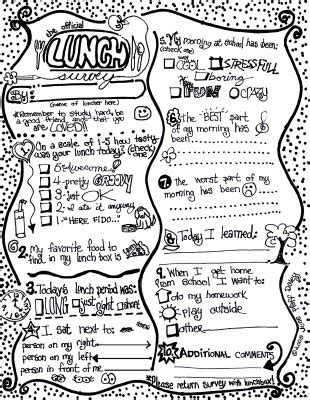 the official
LUNCH
survey
By:
(name of luncher here)
*Remember to study hard, be
a good friend, and that you
are LOVED!!
1. On a scale of 1-5 how tasty
was your lunch today? (check
one)
5 Awesome!
4-pretty GROOVY
3-just OK
2-I ate it anyway
1-"HERE FIDO..."
2. My favorite food to
find in my lunch box is
3. Today's lunch period was:
LONG just right short
4. I sat next to:
person on my right
person on my left
person in front of me
5. My morning at school has been:
(check one)
COOL STRESSFULL
boring
FUN CRAZY
6. the BEST part of
my morning has
been
7. The worst part of my
morning has been
8. Today I learned:
9. When I get home
from school I want to:
do my homework
play outside
other
10. Additional comments
*Please return survey with lunchbox!